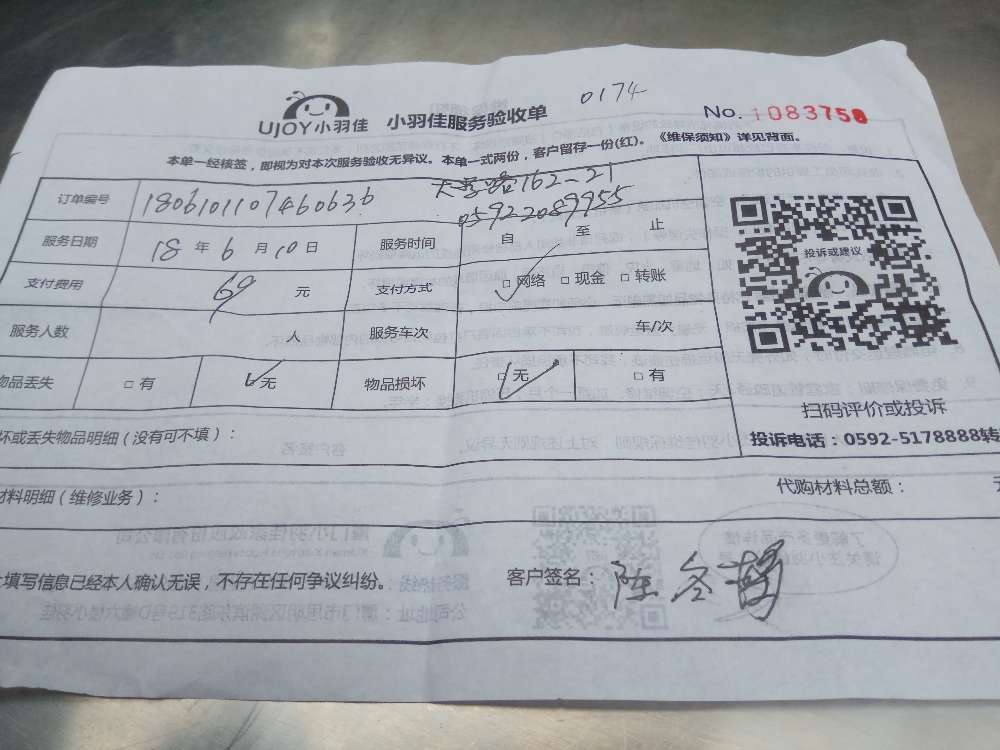 UJOY小羽佳 小羽佳服务验收单 0174 No. 1083758
本单一经核签，即视为对本次服务验收无异议。本单一式两份，客户留存一份(红)。《维保须知》详见背面。
大学路162-21
订单编号 1806101107460636 05922089955
服务日期 18 年 6 月 10 日 服务时间 自 至 止
支付费用 69 元 支付方式 □网络 □现金 □转账
服务人数 人 服务车次 车/次
物品丢失 □有 □无 物品损坏 □无 □有
投诉或建议
扫码评价或投诉
投诉电话：0592-5178888转
坏或丢失物品明细（没有可不填）：
材料明细（维修业务）： 代购材料总额： 元
填写信息已经本人确认无误，不存在任何争议纠纷。 客户签名：陈冬